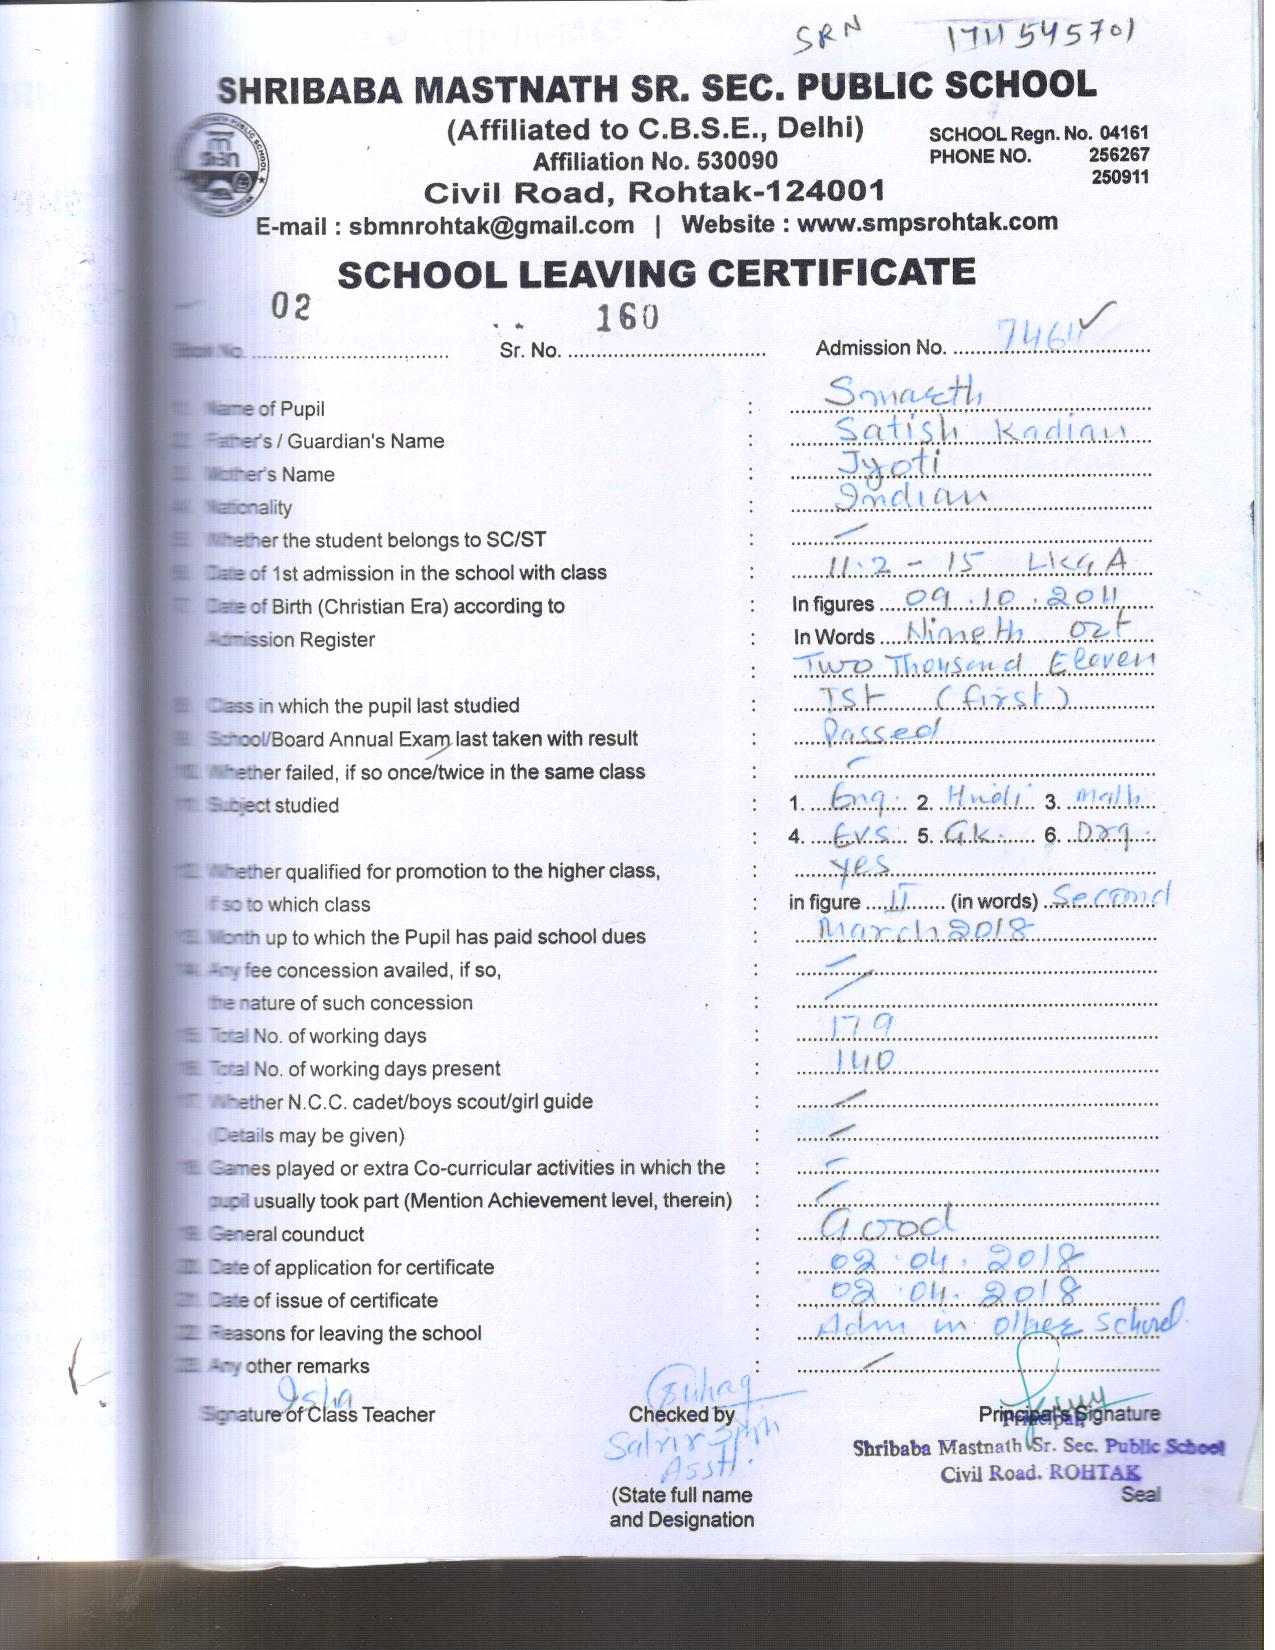 SRN 1711545701
SHRIBABA MASTNATH SR. SEC. PUBLIC SCHOOL
(Affiliated to C.B.S.E., Delhi)
Affiliation No. 530090
SCHOOL Regn. No. 04161
PHONE NO. 256267
250911
Civil Road, Rohtak-124001
E-mail : sbmnrohtak@gmail.com | Website : www.smpsrohtak.com
SCHOOL LEAVING CERTIFICATE
Book No. 02 Sr. No. 160 Admission No. 7464
1. Name of Pupil : Smarth
2. Father's / Guardian's Name : Satish Kadian
3. Mother's Name : Jyoti
4. Nationality : Indian
5. Whether the student belongs to SC/ST :
6. Date of 1st admission in the school with class : 11.2-15 LKG A
7. Date of Birth (Christian Era) according to : In figures 09.10.2011
Admission Register : In Words Nineth Oct
: Two Thousand Eleven
8. Class in which the pupil last studied : Ist (first)
9. School/Board Annual Exam last taken with result : Passed
10. Whether failed, if so once/twice in the same class :
11. Subject studied : 1. Eng. 2. Hindi 3. Math
: 4. EVS 5. G.K. 6. Drg.
12. Whether qualified for promotion to the higher class, : yes
if so to which class : in figure II (in words) Second
13. Month up to which the Pupil has paid school dues : March 2018
14. Any fee concession availed, if so, :
the nature of such concession :
15. Total No. of working days : 179
16. Total No. of working days present : 140
17. Whether N.C.C. cadet/boys scout/girl guide :
(Details may be given) :
18. Games played or extra Co-curricular activities in which the :
pupil usually took part (Mention Achievement level, therein) :
19. General counduct : Good
20. Date of application for certificate : 02.04.2018
21. Date of issue of certificate : 02.04.2018
22. Reasons for leaving the school : Adm in other School.
23. Any other remarks :
Isha Suhag
Signature of Class Teacher Checked by Principal's Signature
Principal,
Asstt.
Shribaba Mastnath Sr. Sec. Public School
Civil Road. ROHTAK
(State full name Seal
and Designation